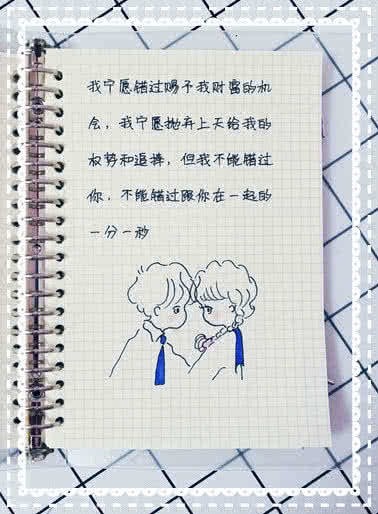 我宁愿错过赐予我财富的机
会，我宁愿抛弃上天给我的
权势和选择，但我不能错过
你，不能错过跟你在一起的
一分一秒